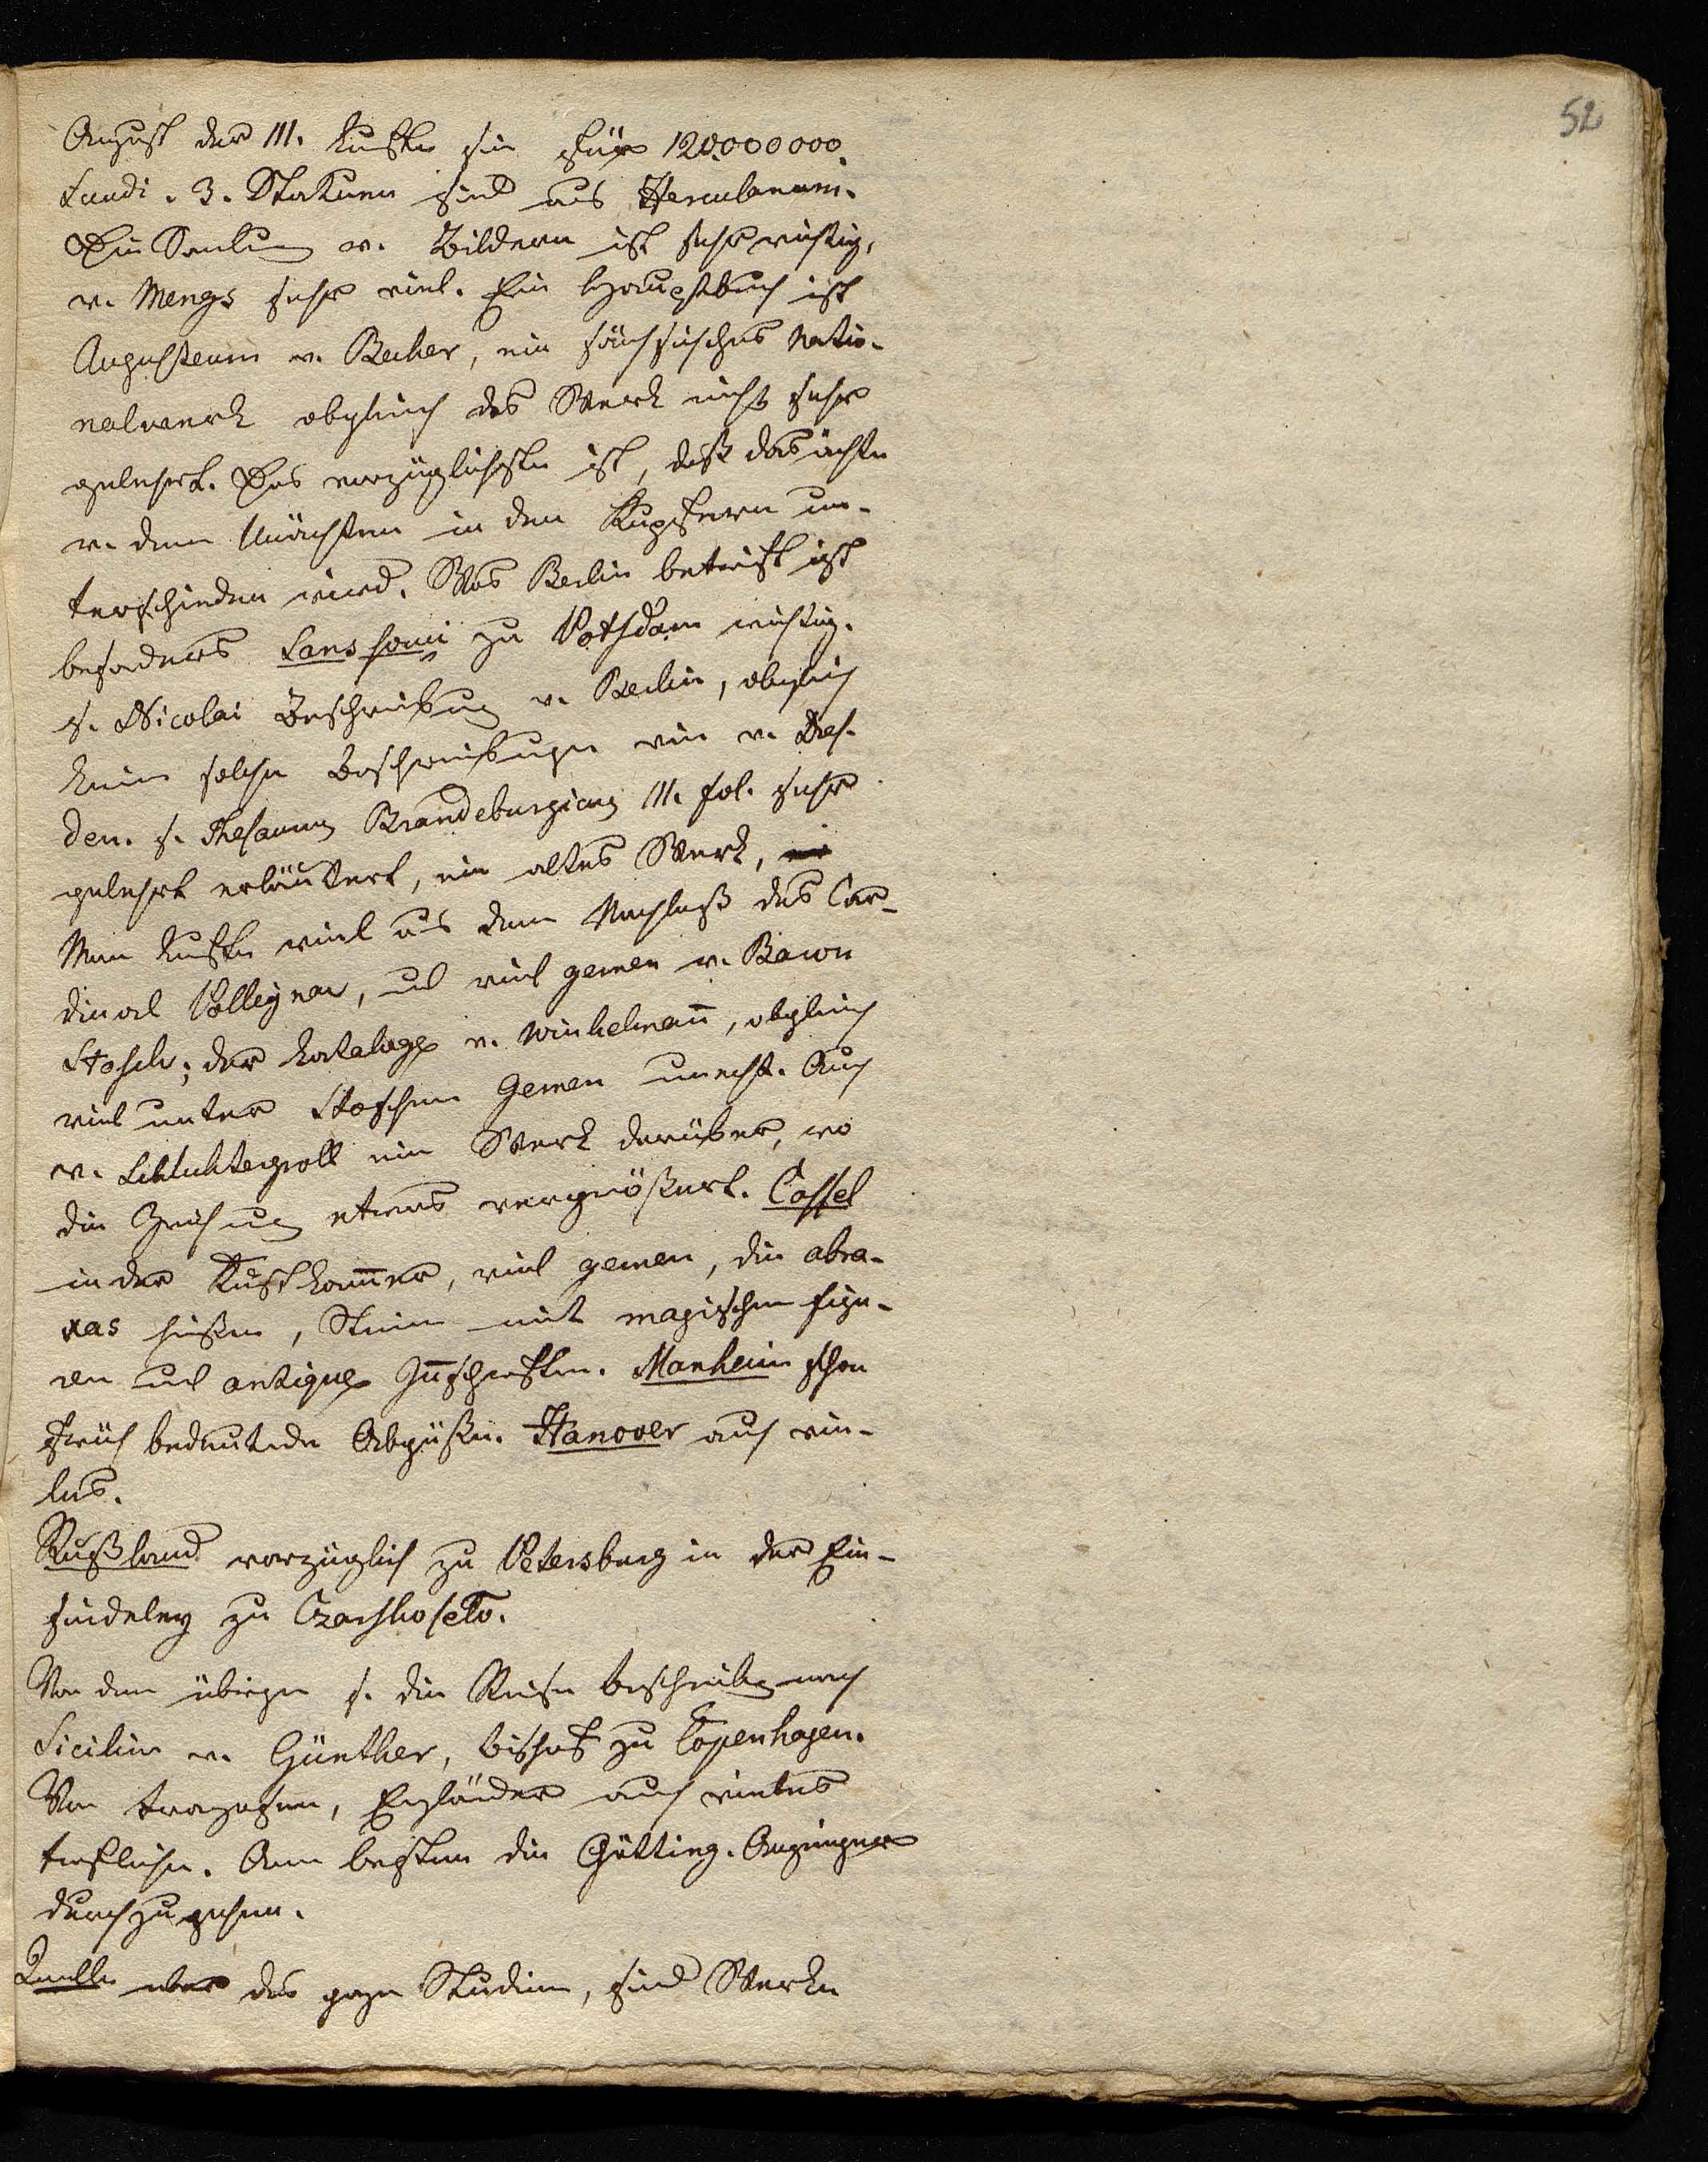 52
August der III. kaufte sie für 120,000000
Scudi. 3. Statuen sind aus Herculanum.
Die Samlung v. Bildern ist sehr wichtig,
v. Mengs sehr viel. Ein Hauptbuch ist
Augusteum v. Becker, ein sächsisches Natio-
nalwerk obgleich das Werk nicht sehr
gelehrt. Das vorzüglichste ist, daß das ächte
v. dem Unächten in den Kupfern un-
terschieden wird. Was Berlin betrift ist
besonders Sanssouci zu Potsdam wichtig.
s. Nicolai Beschreibung v. Berlin, obgleich
keine solche Beschreibungen wie v. Dres-
den. s. Thesaurus Brandeburgicus III. fol. sehr
gelehrt erläutert, ein altes Werk,
Man kaufte viel aus dem Nachlaß des Car-
dinal Pollignac, und viel gemen v. Baron
Stosch; der Katalogo v. Winkelmann, obgleich
viel unter Stoschen Gemen unächt. Auch
v. Schlichtegroll ein Werk darüber, wo
die Zeichnung etwas vergrößert. Cassel
in der Kunstkammer, viel gemen, die abra-
xas heißen, Steine mit magischen figu-
ren und antique Innschriften. Manheim schon
früh bedeutende Abgüße. Hanover auch vie-
les.
Rußland vorzüglich zu Petersburg in der Ein-
siedeley zu Czarskoselo.
Von dem übrigen s. die Reise beschreibung nach
Sicilien v. Günther, bischof zu Copenhagen.
Von Franzosen, Engländer auch vieles
trefliche. Am besten die Götting. Anzeigen
durchzugehen.
Quelle über das ganze Studium, sind Werke